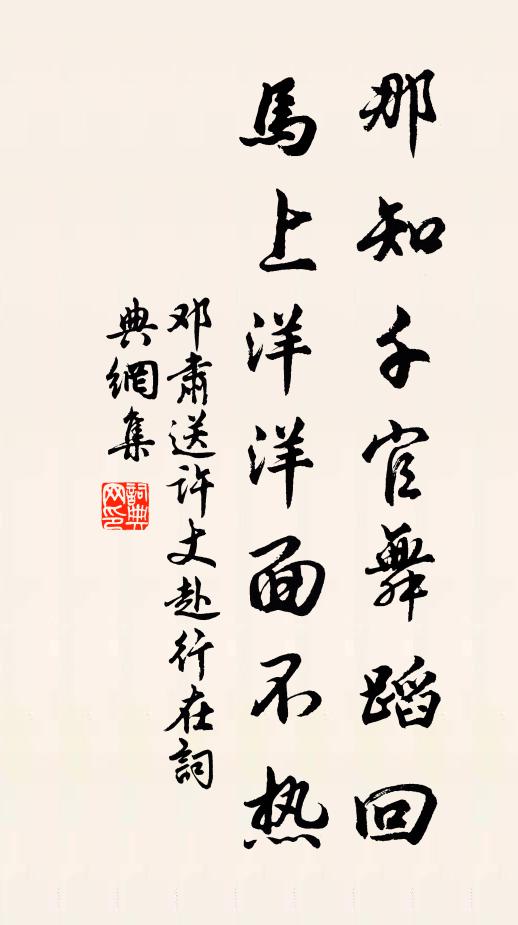 那知千官舞蹈回
馬上洋洋面不热
邓肃送许丈赴行在詞
典網集
詞典网印